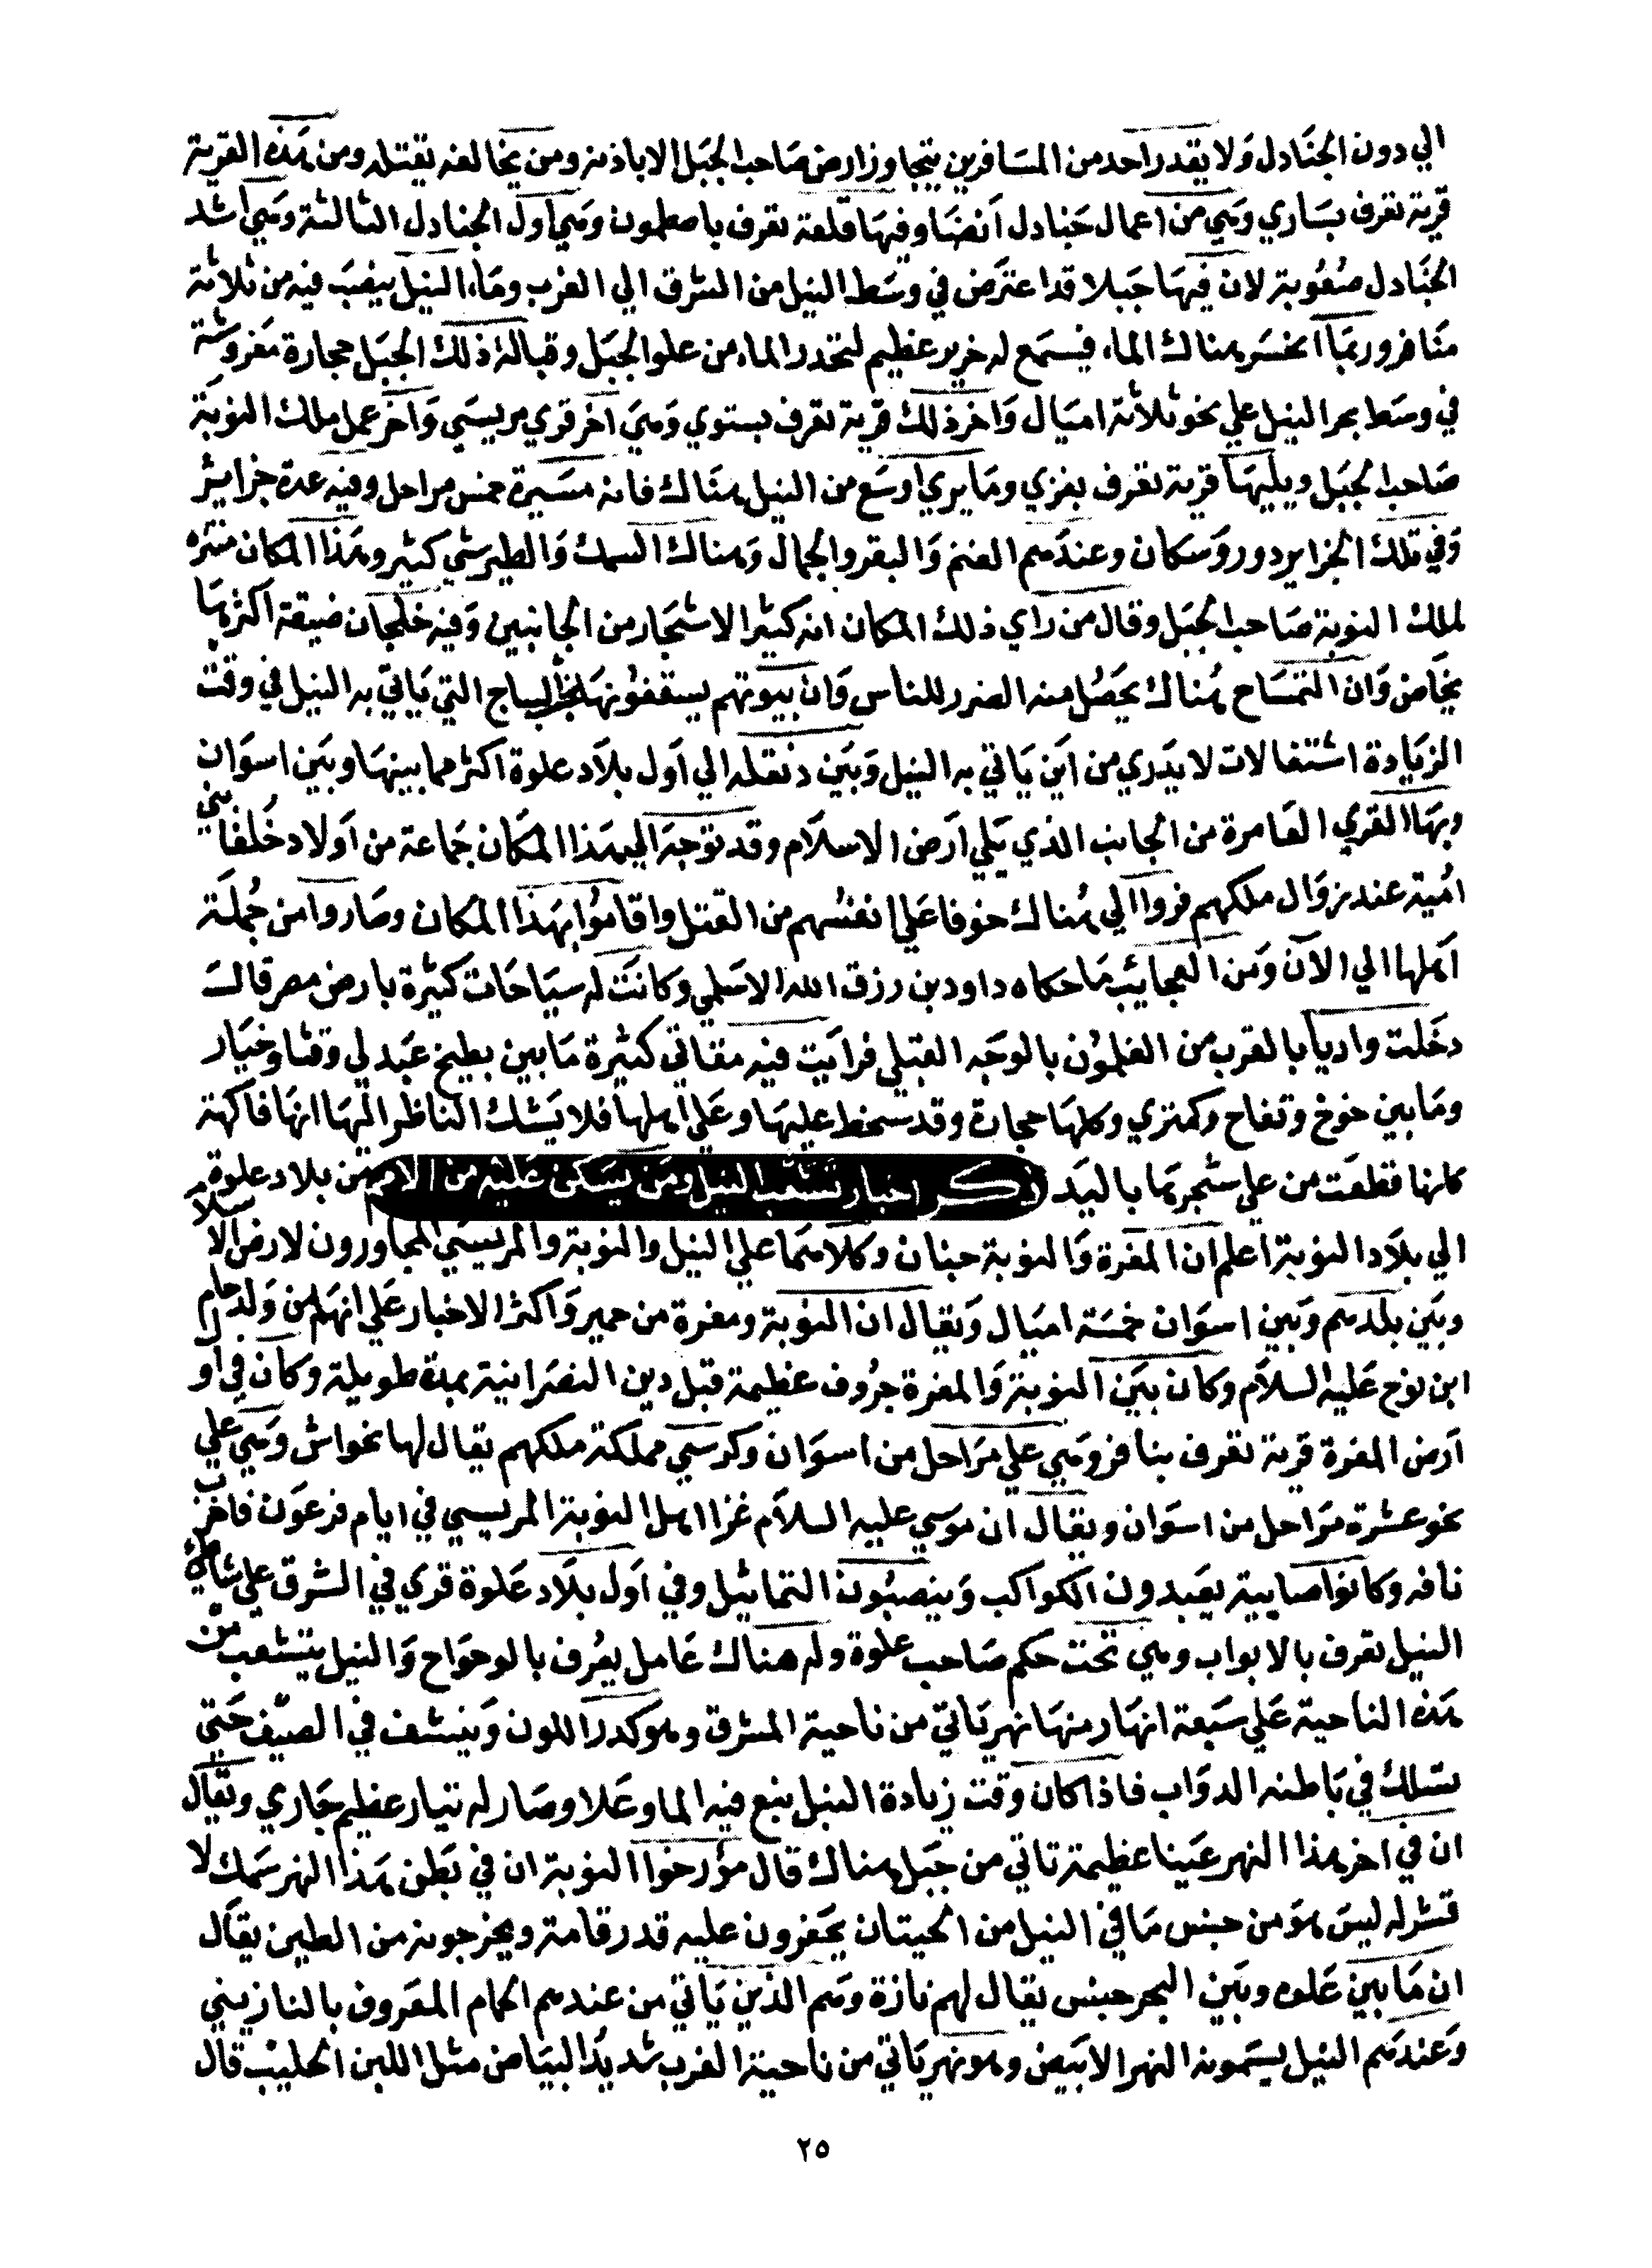 الي دون الجنادل ولا يقدر احد من المسافرين يتجاوز ارض صاحب الجبل الا باذنه ومن يخالفه يقتله ومن هذه القرية
قرية تعرف بساري وهي من اعمال جنادل ايضا وفيها قلعة تعرف باصطمون وهي اول الجنادل الثالثة وهي اشد
الجنادل صعوبة لان فيها جبلا قد اعترض في وسط النيل من الشرق الي الغرب وماء النيل ينصب فيه من ثلاثة
منافر وربما انحسر هناك الماء فيسمع له خرير عظيم لتحدر الماء من علو الجبل وقبالة ذلك الجبل حجارة مفروشة
في وسط بحر النيل علي نحو ثلاثة اميال واخر ذلك قرية تعرف بستوي وهي اخر قري مريسي واخر عمل ملك النوبة
صاحب الجبل ويليها قرية تعرف بغزي وما يري اوسع من النيل هناك فانه مسيرة خمس مراحل وفيه عدة جزاير
وفي تلك الجزاير دور وسكان وعندهم الغنم والبقر والجمال وهناك السمك والطير شي كثير وهذا المكان منتزه
لملك النوبة صاحب الجبل وقال من راي ذلك المكان انه كثير الاشجار من الجانبين وفيه خلجان ضيقة اكثرها
يخاض وان التمساح هناك يحصل منه الضرر للناس وان بيوتهم يسقفونها الساج التي ياتي به النيل في وقت
الزيادة اشتغالات لا يدري من اين ياتي به النيل وبين دنقله الي اول بلاد علوة اكثر مما بينها وبين اسوان
وبها القري العامرة من الجانب الذي يلي ارض الاسلام وقد توجه الي هذا المكان جماعة من اولاد خلفا بني
امية عند زوال ملكهم فروا الي هناك خوفا علي انفسهم من القتل واقاموا بهذا المكان وصاروا من جملة
اهلها الي الآن ومن العجايب ما حكاه داود بن رزق الله الاسلمي وكانت له سياحات كثيرة بارض مصر قال
دخلت واديا بالقرب من القلمون بالوجه القبلي فرايت فيه مقاتي كثيرة ما بين بطيخ عبدلي وقثا وخيار
وما بين خوخ وتفاح وكمثري وكلها حجارة وقد سخط عليها وعلي اهلها فلا يشك الناظر اليها انها فاكهة
كانها قطعت من علي شجرتها باليد ذكر اخبار تشعب النيل ومن يسكن عليه من الامم من بلاد علوة
الي بلاد النوبة اعلم ان المقرة والنوبة جنسان وكلاهما علي النيل والنوبة والمريسي المجاورون لارض الاسلام
وبين بلدهم وبين اسوان خمسة اميال ويقال ان النوبة ومقرة من حمير واكثر الاخبار علي انهم من ولد حام
ابن نوح عليه السلام وكان بين النوبة والمقرة حروف عظيمة قبل دين النصرانية بمدة طويلة وكان في اول
ارض المقرة قرية تعرف بنافر وهي علي مراحل من اسوان وكرسي مملكة ملكهم يقال لها نحواش وهي علي
نحو عشرة مراحل من اسوان ويقال ان موسي عليه السلام غزا اهل النوبة المريسي في ايام فرعون فاخرب
نافه وكانوا صابية يعبدون الكواكب وينصبون التماثيل وفي اول بلاد علوة قري في الشرق علي شاطئ
النيل تعرف بالابواب وهي تحت حكم صاحب علوة وله هناك عامل يعرف بالوحواح والنيل يتشعب من
هذه الناحية علي سبعة انهار منها نهر ياتي من ناحية المشرق وهو كدر اللون وينشف في الصيف حتي
يسلك في باطنه الدواب فاذا كان وقت زيادة النيل ينبع فيه الما وعلا وصار له تيار عظيم جاري ويقال
ان في اخر هذا النهر عينا عظيمة تاتي من جبل هناك قال مؤرخوا النوبة ان في بطن هذا النهر سمك لا
قشر له ليس هو من جنس ما في النيل من الحيتان يحفرون عليه قدر قامة ويخرجونه من الطين يقال
ان ما بين علوه وبين البحر جنس يقال لهم نازة وهم الذين ياتي من عندهم الحمام المعروف بالنازيني
وعندهم النيل يسمونه النهر الابيض وهو نهر ياتي من ناحية الغرب شديد البياض مثل اللبن الحليب قال
٢٥